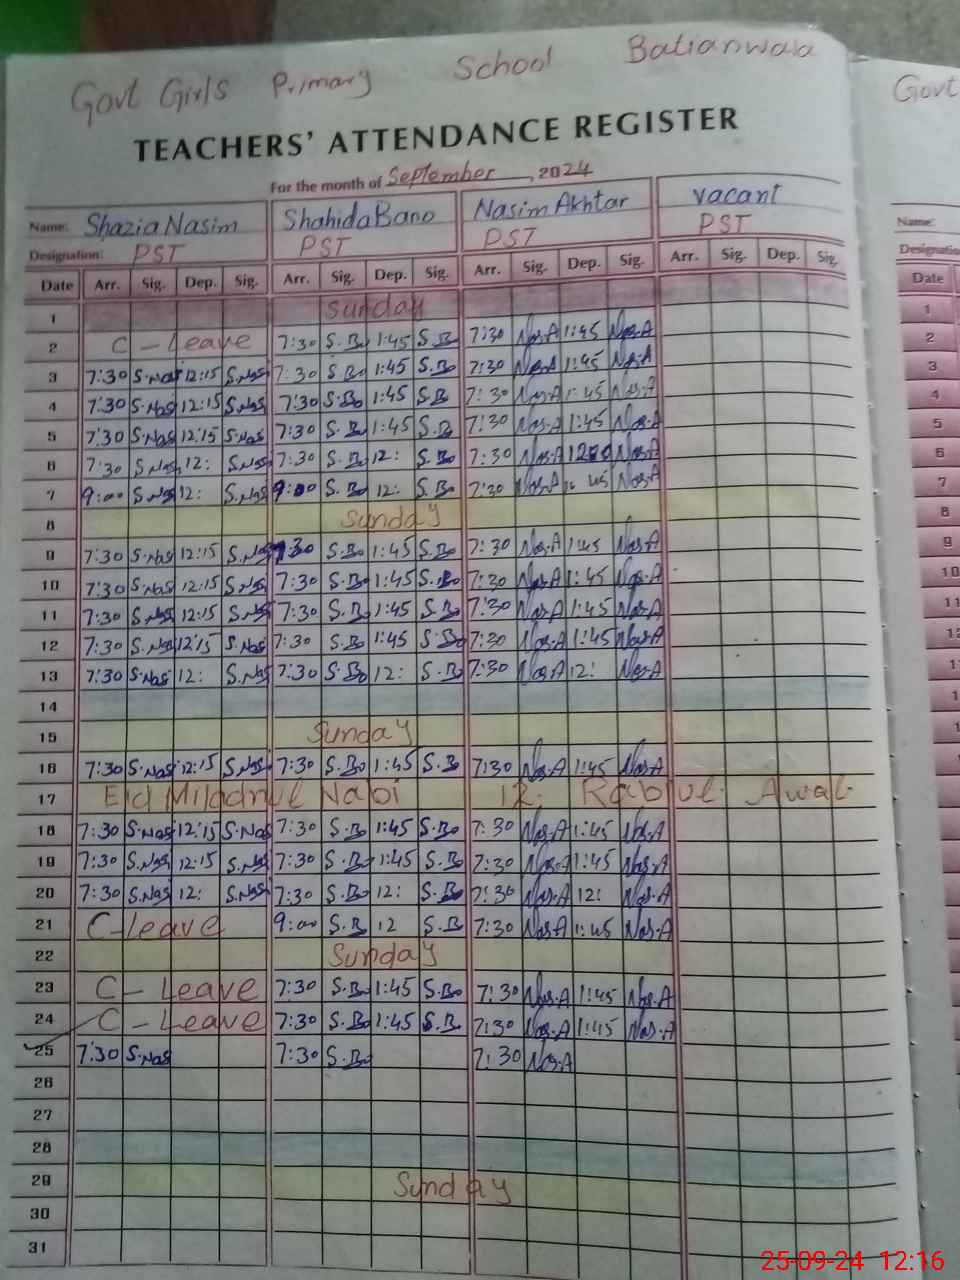 Govt Girls Primary School Batianwala
Govt
TEACHERS' ATTENDANCE REGISTER
For the month of September, 2024
Name: Shazia Nasim Shahida Bano Nasim Akhtar vacant
Name:
Designation: PST PST PST PST
Date Arr. Sig. Dep. Sig. Arr. Sig. Dep. Sig. Arr. Sig. Dep. Sig. Arr. Sig. Dep. Sig.
Date
1 Sunday
2 C - Leave 7:30 S.Bo 1:45 S.Bo 7:30 Nas.A 1:45 Nas.A
3 7:30 S.Nas 12:15 S.Nas 7:30 S.Bo 1:45 S.Bo 7:30 Nas.A 1:45 Nas.A
4 7:30 S.Nas 12:15 S.Nas 7:30 S.Bo 1:45 S.B 7:30 Nas.A 1:45 Nas.A
5 7:30 S.Nas 12:15 S.Nas 7:30 S.Bo 1:45 S.B 7:30 Nas.A 1:45 Nas.A
6 7:30 S.Nas 12: S.Nas 7:30 S.Bo 12: S.Bo 7:30 Nas.A Nas.A
7 9:00 S.Nas 12: S.Nas 9:00 S.Bo 12: S.Bo 7:30 Nas.A Nas.A
8 Sunday
9 7:30 S.Nas 12:15 S.Nas 7:30 S.Bo 1:45 S.Bo 7:30 Nas.A 1:45 Nas.A
10 7:30 S.Nas 12:15 S.Nas 7:30 S.Bo 1:45 S.Bo 7:30 Nas.A 1:45 Nas.A
11 7:30 S.Nas 12:15 S.Nas 7:30 S.Bo 1:45 S.Bo 7:30 Nas.A 1:45 Nas.A
12 7:30 S.Nas 12:15 S.Nas 7:30 S.Bo 1:45 S.Bo 7:30 Nas.A 1:45 Nas.A
13 7:30 S.Nas 12: S.Nas 7:30 S.Bo 12: S.Bo 7:30 Nas.A 12: Nas.A
14
15 Sunday
16 7:30 S.Nas 12:15 S.Nas 7:30 S.Bo 1:45 S.Bo 7:30 Nas.A 1:45 Nas.A
17 Eid Miladnul Nabi 12. Rabiul. Awal.
18 7:30 S.Nas 12:15 S.Nas 7:30 S.Bo 1:45 S.Bo 7:30 Nas.A 1:45 Nas.A
19 7:30 S.Nas 12:15 S.Nas 7:30 S.Bo 1:45 S.Bo 7:30 Nas.A 1:45 Nas.A
20 7:30 S.Nas 12: S.Nas 7:30 S.Bo 12: S.Bo 7:30 Nas.A 12: Nas.A
21 C-Leave 9:00 S.Bo 12 S.B 7:30 Nas.A 1:45 Nas.A
22 Sunday
23 C - Leave 7:30 S.Bo 1:45 S.Bo 7:30 Nas.A 1:45 Nas.A
24 C - Leave 7:30 S.Bo 1:45 S.Bo 7:30 Nas.A 1:45 Nas.A
25 7:30 S.Nas 7:30 S.Bo 7:30 Nas.A
26
27
28
29 Sunday
30
31
25-09-24 12:16